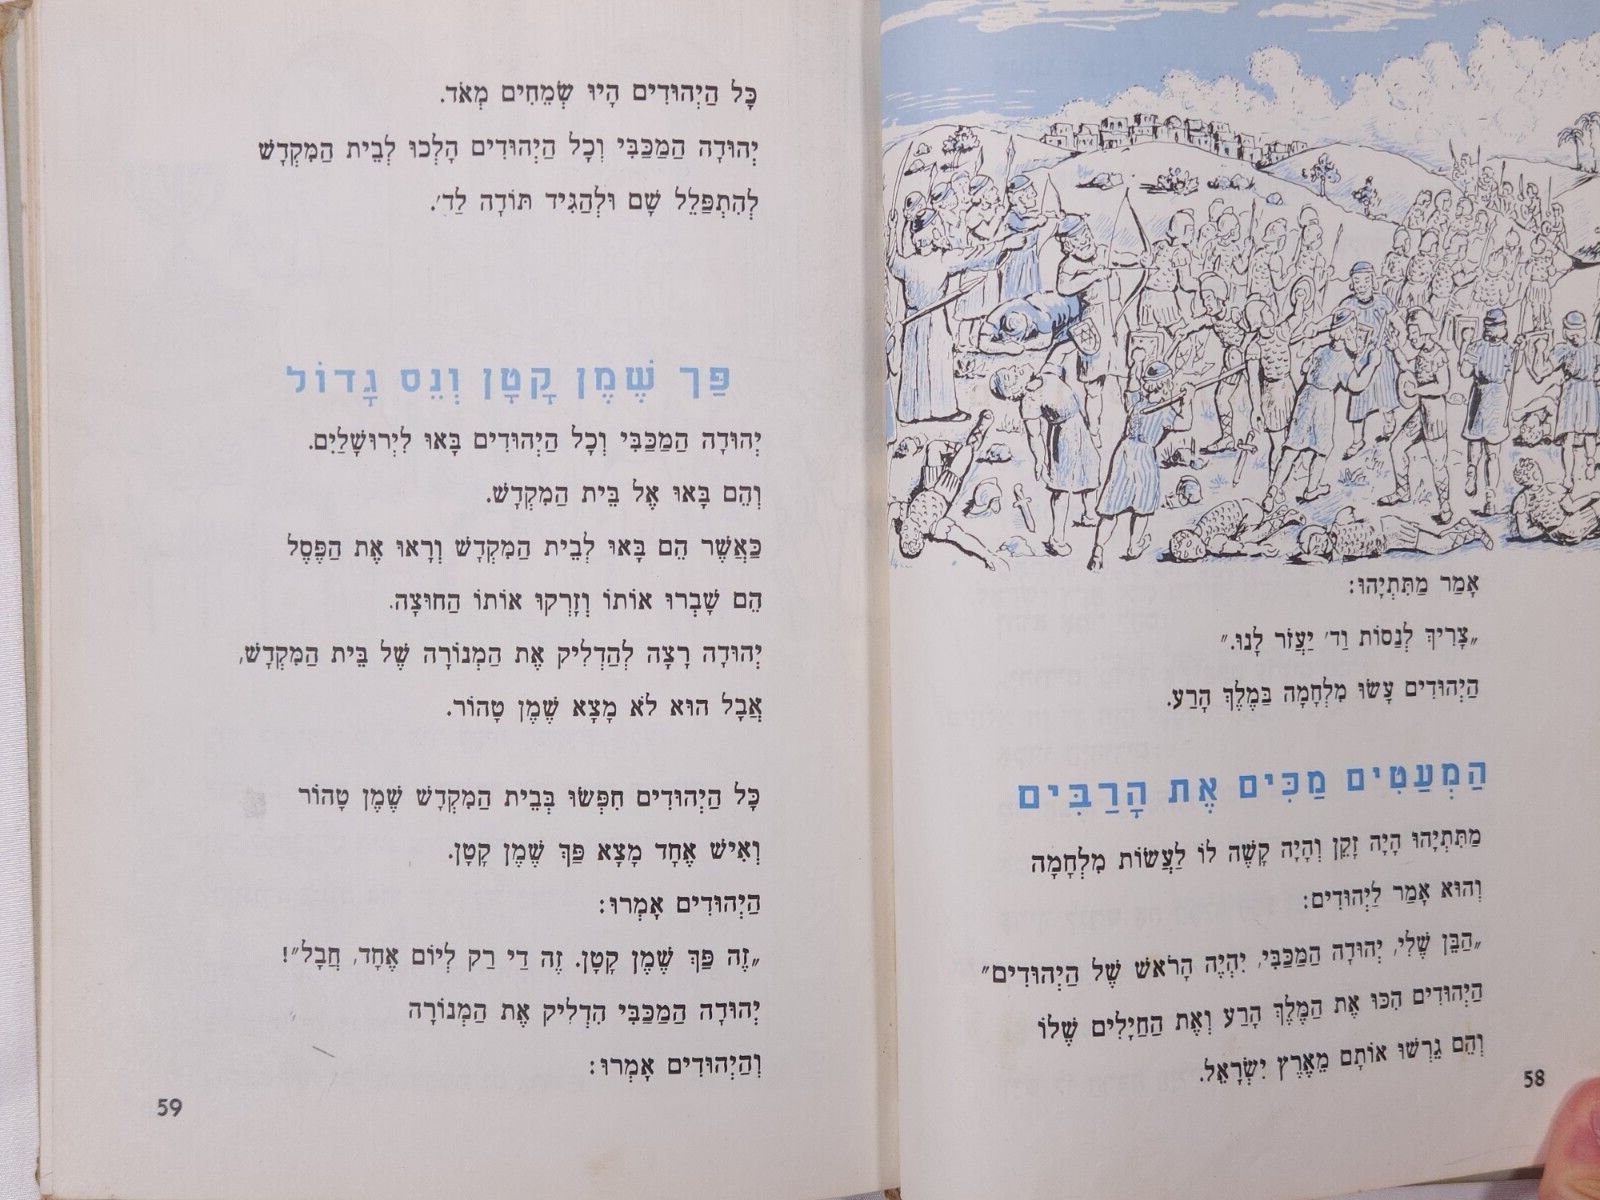 אָמַר מַתִּתְיָהוּ:
„צָרִיךְ לְנַסּוֹת וַד׳ יַעֲזֹר לָנוּ.״
הַיְהוּדִים עָשׂוּ מִלְחָמָה בַּמֶּלֶךְ הָרַע.
הַמְעַטִּים מַכִּים אֶת הָרַבִּים
מַתִּתְיָהוּ הָיָה זָקֵן וְהָיָה קָשֶׁה לוֹ לַעֲשׂוֹת מִלְחָמָה
וְהוּא אָמַר לַיְהוּדִים:
„הַבֵּן שֶׁלִּי, יְהוּדָה הַמַּכַּבִּי, יִהְיֶה הָרֹאשׁ שֶׁל הַיְהוּדִים״
הַיְהוּדִים הִכּוּ אֶת הַמֶּלֶךְ הָרַע וְאֶת הַחַיָּלִים שֶׁלּוֹ
וְהֵם גֵּרְשׁוּ אוֹתָם מֵאֶרֶץ יִשְׂרָאֵל.
58
כָּל הַיְהוּדִים הָיוּ שְׂמֵחִים מְאֹד.
יְהוּדָה הַמַּכַּבִּי וְכָל הַיְהוּדִים הָלְכוּ לְבֵית הַמִּקְדָּשׁ
לְהִתְפַּלֵּל שָׁם וּלְהַגִּיד תּוֹדָה לַד׳.
פַּךְ שֶׁמֶן קָטָן וְנֵס גָּדוֹל
יְהוּדָה הַמַּכַּבִּי וְכָל הַיְהוּדִים בָּאוּ לִירוּשָׁלַיִם.
וְהֵם בָּאוּ אֶל בֵּית הַמִּקְדָּשׁ.
כַּאֲשֶׁר הֵם בָּאוּ לְבֵית הַמִּקְדָּשׁ וְרָאוּ אֶת הַפֶּסֶל
הֵם שָׁבְרוּ אוֹתוֹ וְזָרְקוּ אוֹתוֹ הַחוּצָה.
יְהוּדָה רָצָה לְהַדְלִיק אֶת הַמְּנוֹרָה שֶׁל בֵּית הַמִּקְדָּשׁ,
אֲבָל הוּא לֹא מָצָא שֶׁמֶן טָהוֹר.
כָּל הַיְהוּדִים חִפְּשׂוּ בְּבֵית הַמִּקְדָּשׁ שֶׁמֶן טָהוֹר
וְאִישׁ אֶחָד מָצָא פַּךְ שֶׁמֶן קָטָן.
הַיְהוּדִים אָמְרוּ:
„זֶה פַּךְ שֶׁמֶן קָטָן. זֶה דַּי רַק לְיוֹם אֶחָד, חֲבָל״!
יְהוּדָה הַמַּכַּבִּי הִדְלִיק אֶת הַמְּנוֹרָה
וְהַיְהוּדִים אָמְרוּ:
59